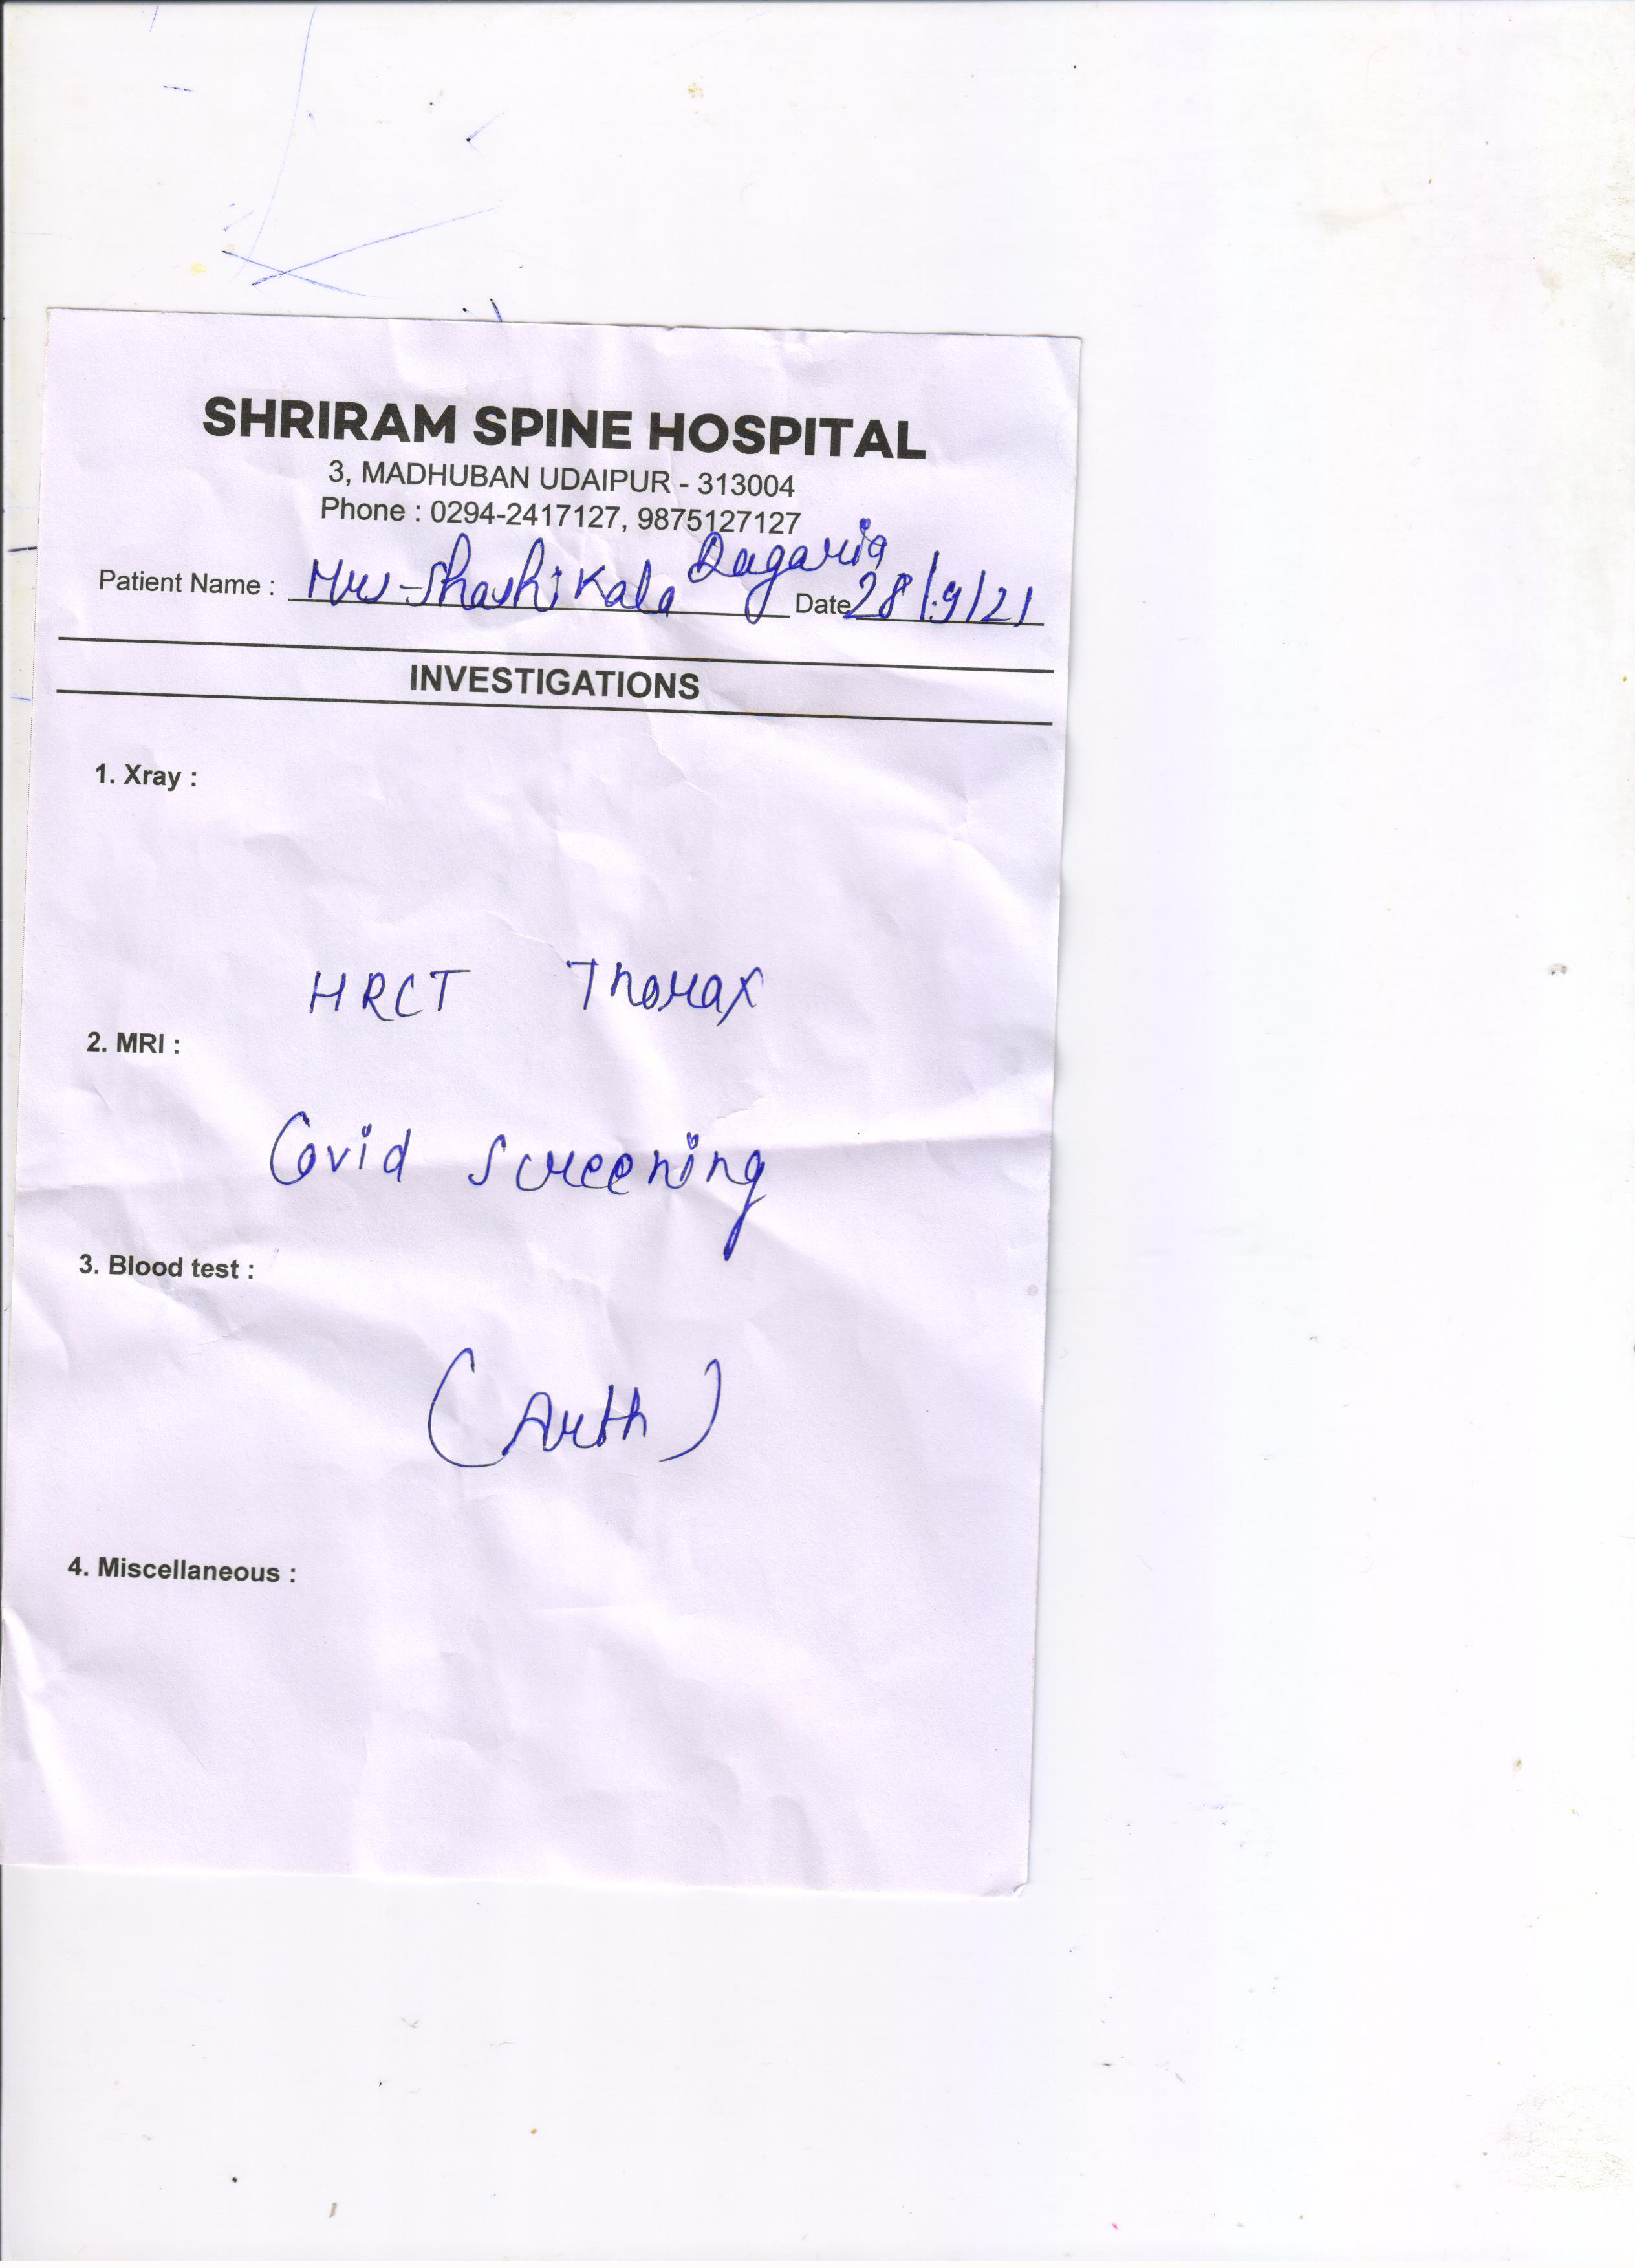 SHRIRAM SPINE HOSPITAL
3, MADHUBAN UDAIPUR - 313004
Phone : 0294-2417127, 9875127127
Patient Name : Mrs - Shashi Kala Dagaria Date 28/9/21
INVESTIGATIONS
1. Xray :
HRCT Thorax
2. MRI :
Covid Screening
3. Blood test :
(Arth)
4. Miscellaneous :